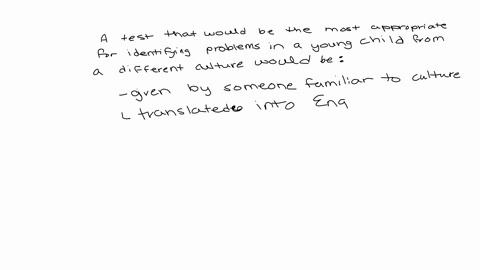 A test that would be the most appropriate
for identifying problems in a young child from
a different culture would be:
- given by someone familiar to culture
↳ translated into Eng